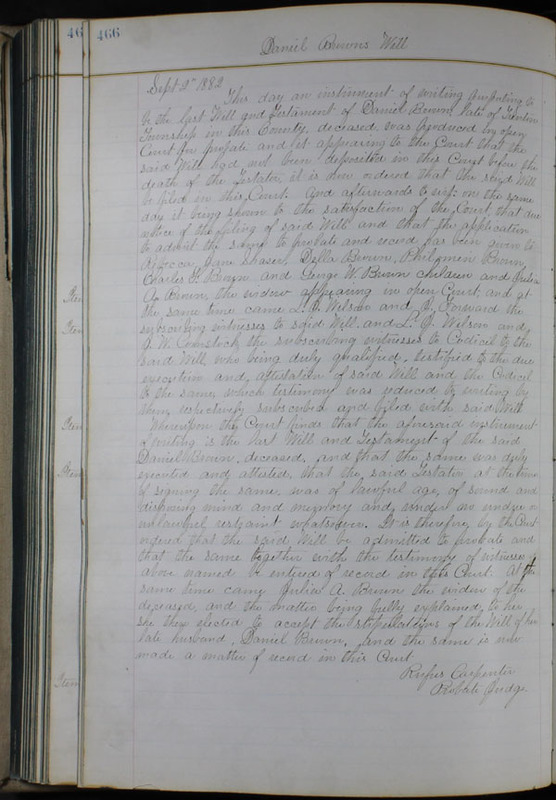 46 466
Daniel Browns Will
Sept 2nd 1882
This day an instrument of writing purporting to
be the last Will and Testament of Daniel Brown, late of Trenton
Township in this County, deceased, was produced in open
Court for probate and it appearing to the Court that the
said Will had not been deposited in this Court before the
death of the Testator, it is now ordered that the said Will
be filed in this Court. And afterwards to wit: on the same
day it being shown to the satisfaction of the Court, that due
notice of the filing of said Will, and that the application
to admit the same to probate and record has been given to
Rebecca Jane Chaser, Della Brown, Philymen Brown,
Charles G. Brown and George W. Brown children and Julia
A. Brown, the widow appearing in open Court, and at
Item
the same time came L. P. Wilson and Forward the
Item
subscribing witnesses to said Will, and L. P. Wilson and
W. Comstock the subscribing witnesses to Codicil to the
said Will, who being duly qualified, testified to the due
execution and attestation of said Will and the Codicil
to the same, which testimony was reduced to writing by
them, respectively subscribed and filed with said Will
Item
Whereupon the Court finds that the aforesaid instrument
of writing is the last Will and Testament of the said
Daniel Brown, deceased, and that the same was duly
Item
executed and attested, that the said Testator at the time
of signing the same, was of lawful age, of sound and
disposing mind and memory and under no undue or
unlawful restraint whatsoever. It is therefore by the Court
ordered that the said Will be admitted to probate and
that the same together with the testimony of witnesses
above named be entered of record in this Court. At the
same time came Julia A. Brown the widow of the
deceased, and the matter being fully explained to her
she then elected to accept the stipulations of the Will of her
late husband, Daniel Brown, and the same is now
made a matter of record in this Court
Rufus Carpenter
Item
Probate Judge